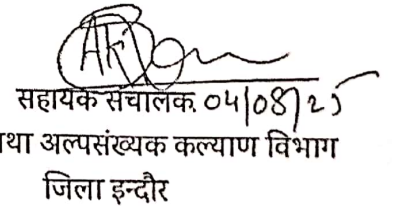 सहायक संचालक. 04/08/25
तथा अल्पसंख्यक कल्याण विभाग
जिला इन्दौर